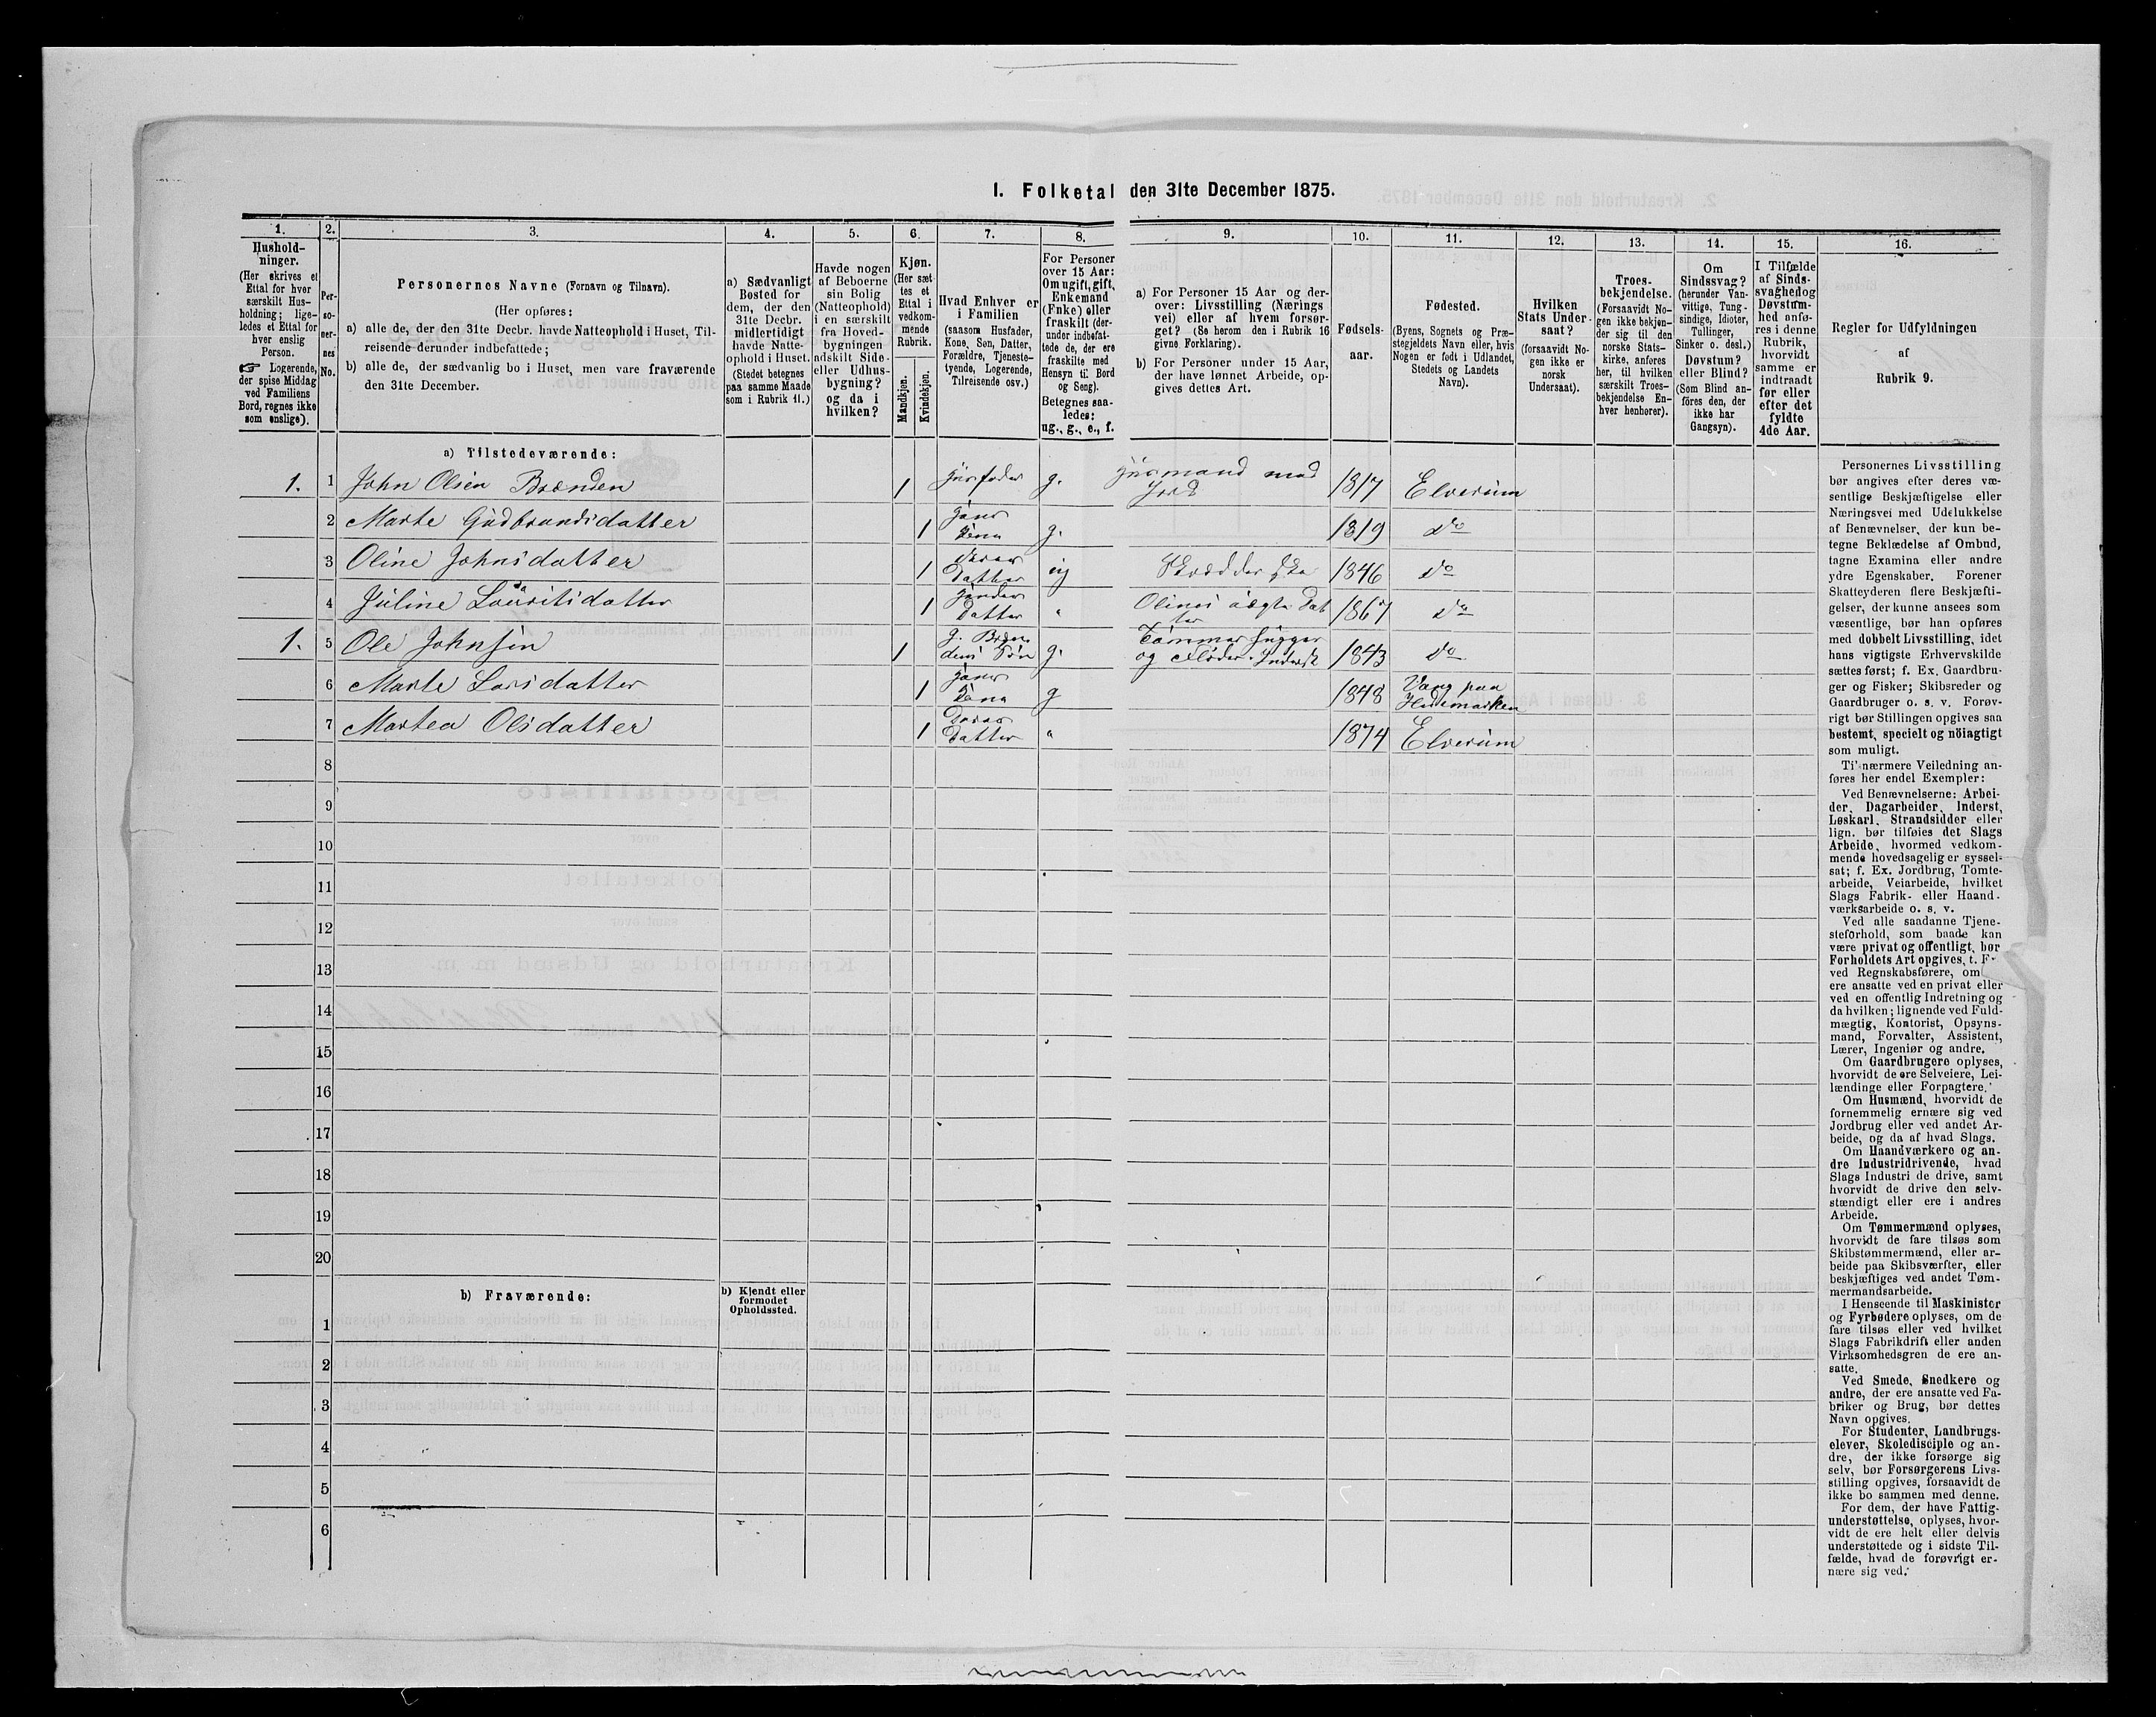 1. Folketal den 31te December 1875.
1. 2. 3. 4. 5. 6. 7. 8. 9. 10. 11. 12. 13. 14. 15. 16.
Husholdninger.
(Her skrives et
Ettal for hver
særskilt Hus-
holdning; lige-
ledes et Ettal for
hver enslig
Person.
☞ Logerende,
der spise Middag
ved Familiens
Bord, regnes ikke
som enslige).
Per-
so-
ner-
nes
No.
Personernes Navne (Fornavn og Tilnavn).
(Her opføres:
a) alle de, der den 31te Decbr. havde Natteophold i Huset, Til-
reisende derunder indbefattede;
b) alle de, der sædvanlig bo i Huset, men vare fraværende
den 31te December.
a) Sædvanligt
Bosted for
dem, der den
31te Decbr.
midlertidigt
havde Natte-
ophold i Huset.
(Stedet betegnes
paa samme Maade
som i Rubrik 11.)
Havde nogen
af Beboerne
sin Bolig
(Natteophold)
i en særskilt
fra Hoved-
bygningen
adskilt Side-
eller Udhus-
bygning?
og da i
hvilken?
Kjøn.
(Her sæt-
tes et
Ettal i
vedkom-
mende
Rubrik.
Mandkjøn.
Kvindekjøn.
Hvad Enhver er
i Familien
(saasom Husfader,
Kone, Søn, Datter,
Forældre, Tjeneste-
tyende, Logerende,
Tilreisende osv.)
For Personer
over 15 Aar:
Om ugift, gift,
Enkemand
(Enke) eller
fraskilt (der-
under indbefat-
tede de, der ere
fraskilte med
Hensyn til Bord
og Seng).
Betegnes saa-
ledes:
ug., g., e., f.
a) For Personer 15 Aar og der-
over: Livsstilling (Nærings
vei) eller af hvem forsør-
get? (Se herom den i Rubrik 16
givne Forklaring).
b) For Personer under 15 Aar,
der have lønnet Arbeide, op-
gives dettes Art.
Fødsels-
aar.
Fødested.
(Byens, Sognets og Præ-
stegjeldets Navn eller, hvis
Nogen er født i Udlandet,
Stedets og Landets
Navn).
Hvilken
Stats Under-
saat?
(forsaavidt No-
gen ikke er
norsk
Undersaat).
Troes-
bekjendelse.
(Forsaavidt No-
gen ikke bekjen-
der sig til den
norske Stats-
kirke, anføres
her, til hvilken
særskilt Troes-
bekjendelse En-
hver henhører).
Om
Sindssvag?
(herunder Van-
vittige, Tung-
sindige, Idioter,
Tullinger,
Sinker o. desl.)
Døvstum?
eller Blind?
(Som Blind an-
føres den, der
ikke har
Gangsyn).
I Tilfælde
af Sinds-
svaghed og
Døvstum-
hed anfø-
res i denne
Rubrik,
hvorvidt
samme er
indtraadt
før eller
efter det
fyldte
4de Aar.
Regler for Udfyldningen
af
Rubrik 9.
a) Tilstedeværende:
1. 1 John Olsen Brænden 1 Husfader g. Husmand med Jord 1817 Elverum
2 Marte Gudbrandsdatter 1 Hans Kona g. 1819 do
3 Oline Johnsdatter 1 Deres Datter ug Skrædderske 1846 do
4 Juline Lauritsdatter 1 Hendes Datter " Olines uægte Datter 1867 do
1. 5 Ole Johnsen 1 g. Brændens Søn g. Tømmerhugger og Fløder. Inderst 1843 do
6 Marte Larsdatter 1 Hans Kona g 1848 Vang paa Hedemarken
7 Martea Olsdatter 1 Deres Datter " 1874 Elverum
8
9
10
11
12
13
14
15
16
17
18
19
20
b) Fraværende:
b) Kjendt eller
formodet
Opholdssted.
1
2
3
4
5
6
Personernes Livsstilling
bør angives efter deres væ-
sentlige Beskjæftigelse eller
Næringsvei med Udelukkelse
af Benævnelser, der kun be-
tegne Beklædelse af Ombud,
tagne Examina eller andre
ydre Egenskaber. Forener
Skatteyderen flere Beskjæfti-
gelser, der kunne ansees som
væsentlige, bør han opføres
med dobbelt Livsstilling, idet
hans vigtigste Erhvervskilde
sættes først; f. Ex. Gaardbru-
ger og Fisker; Skibsreder og
Gaardbruger o. s. v. Forøv-
rigt bør Stillingen opgives saa
bestemt, specielt og nöiagtigt
som muligt.
Til nærmere Veiledning an-
føres her endel Exempler:
Ved Benævnelserne: Arbei-
der, Dagarbeider, Inderst,
Løskarl, Strandsidder eller
lign. bør tilføies det Slags
Arbeide, hvormed vedkom-
mende hovedsagelig er syssel-
sat; f. Ex. Jordbrug, Tomte-
arbeide, Veiarbeide, hvilket
Slags Fabrik- eller Haand-
værksarbeide o. s. v.
Ved alle saadanne Tjene-
steforhold, som baade kan
være privat og offentligt, bør
Forholdets Art opgives, t. E
ved Regnskabsførere, om
ere ansatte ved en privat eller
ved en offentlig Indretning og
da hvilken; lignende ved Fuld-
mægtig, Kontorist, Opsyns-
mand, Forvalter, Assistent,
Lærer, Ingeniør og andre.
Om Gaardbrugere oplyses,
hvorvidt de ere Selveiere, Lei-
lændinge eller Forpagtere.
Om Husmænd, hvorvidt de
fornemmelig ernære sig ved
Jordbrug eller ved andet Ar-
beide, og da af hvad Slags.
Om Haandværkere og an-
dre Industridrivende, hvad
Slags Industri de drive, samt
hvorvidt de drive den selv-
stændigt eller ere i andres
Arbeide.
Om Tømmermænd oplyses,
hvorvidt de fare tilsøs som
Skibstømmermænd, eller ar-
beide paa Skibsværfter, eller
beskjæftiges ved andet Tøm-
mermandsarbeide.
I Henseende til Maskinister
og Fyrbødere oplyses, om de
fare tilsøs eller ved hvilket
Slags Fabrikdrift eller anden
Virksomhedsgren de ere an-
satte.
Ved Smede, Snedkere og
andre, der ere ansatte ved Fa-
briker og Brug, bør dettes
Navn opgives.
For Studenter, Landbrugs-
elever, Skoledisciple og an-
dre, der ikke forsørge sig
selv, bør Forsørgerens Livs-
stilling opgives, forsaavidt de
ikke bo sammen med denne.
For dem, der have Fattig-
understøttelse, oplyses, hvor-
vidt de ere helt eller delvis
understøttede og i sidste Til-
fælde, hvad de forøvrigt er-
nære sig ved.